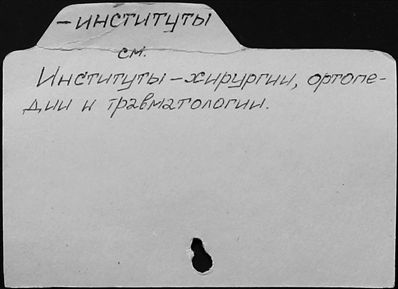 -институты
см.
Институты-хирургии, ортопе-
дии и травматологии.